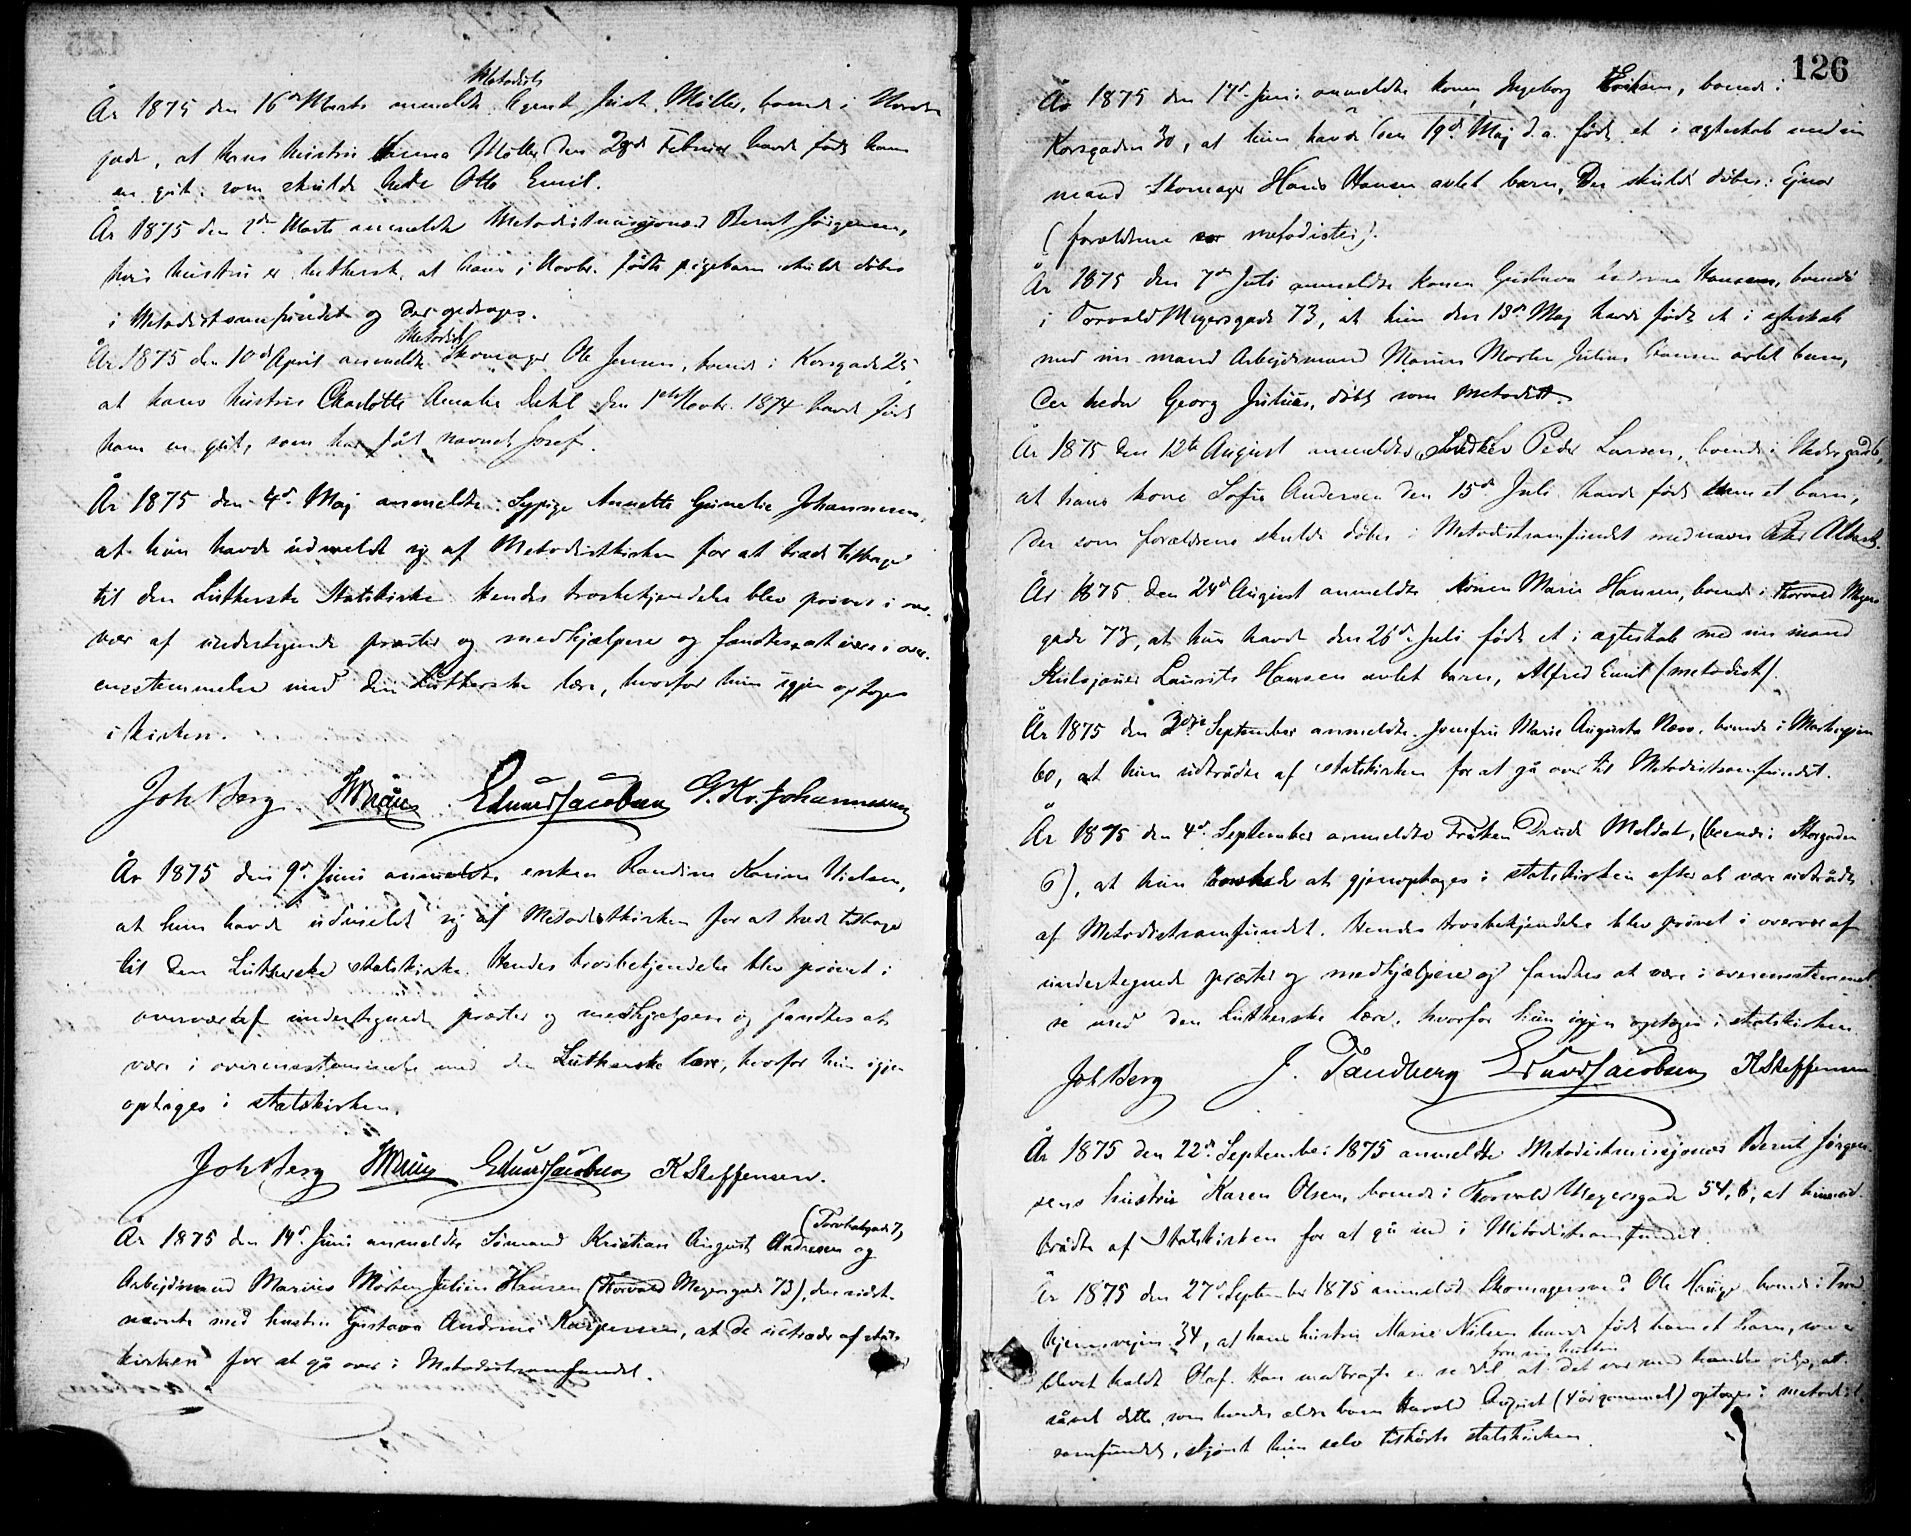 Metodist
År 1875 den 16de Marts anmeldte Agent Just. Møller, boende i Norda
gade, at Hans hustru Hanna Møller den 28de Februar havde født ham
en gut, som skulde hede Otto Emil.
År 1875 den 2den Marts anmeldte Metodistmissjonær Bernt Jørgensen,
hvis hustru er luthersk, at hans i Novbr. fødte pigebarn skulde døbes
i Metodistsamfundet og der opdrages.
Metodist
År 1875 den 10de April anmeldte Skomager Ole Jensen, boende i Korsgade 25,
at hans hustru Charlotte Amalie Dahl den 1ste Novbr. 1874 havde født
ham en gut, som har fåt navnet Josef.
År 1875 den 4de Maj anmeldte Sypige Annette Gunelie Johannesen,
at hun havde udmeldt sig af Metodistkirken for at træde tilbage
til den Lutherske Statskirke. Hendes trosbekjendelse blev prøvet i over-
vær af undertegnede præster og medhjælpere og fandtes at være i over-
ensstemmelse med den Lutherske lære, hvorfor hun igjen optoges
i kirken.
Joh Berg Edvard Jacobsen G. Kr. Johannesen
År 1875 den 9de Juni anmeldte enken Randine Karine Nielsen,
at hun havde udmeldt sig af Metodistkirken for at træde tilbage
til den Lutherske statskirke. Hendes trosbekjendelse blev prøvet i
overvær af undertegnede præster og medhjælpere og fandtes at
være i overensstemmelse med den Lutherske lære, hvorfor hun igjen
optoges i statskirken.
Joh Berg Edvard Jacobsen K Steffensen.
(Torvbakgade 7)
År 1875 den 14de Juni anmeldte Sømand Kristian August Andresen og
Arbejdsmand Marius Morten Julius Hansen (Thorvald Meyersgade 73), den sidst-
nævnte med hustru Gustava Andrine Kaspersen, at de udtræde af stats-
kirken for at gå over i Metodistsamfundet.
126
År 1875 den 17de Juni anmeldte konen Ingeborg Eriksen, boende i
Korsgaden 30, at hun havde den 19de Maj d.a. født et i ægteskab med sin
mand Skomager Hans Hansen avlet barn, der skulde døbes: Ejnar
(forældrene er metodister).
År 1875 den 7de Juli anmeldte konen Gustava Andrine Hansen, boende
i Torvald Meyersgade 73, at hun den 13de Maj havde født et i ægteskab
med sin mand Arbejdsmand Marius Morten Julius Hansen avlet barn,
der heder Georg Julius, døbt som metodist.
År 1875 den 12te August anmeldte Snedker Peder Larsen, boende i Nedregade 6,
at hans kone Sofie Andersen den 15de Juli havde født ham et barn,
der som forældrene skulde døbes i Metodistsamfundet med navn Peter Albert.
År 1875 den 24de August anmeldte konen Marie Hansen, boende i Thorvald Meyers
gade 73, at hun havde den 26de Juli født et i ægteskab med sin mand
Laurits Hansen avlet barn, Alfred Emil (metodist).
År 1875 den 3die September anmeldte Jomfru Marie Augusta Næss, boende i Markvejen
60, at hun udtrådte af statskirken for at gå over til Metodistsamfundet.
År 1875 den 4de September anmeldte Frøken Drude Meldal, (boende i Storgaden
6), at hun ønskede at gjenoptages i statskirken efter at være udtrådt
af Metodistsamfundet. Hendes trosbekjendelse blev prøvet i overvær af
undertegnede præster og medhjælpere og fandtes at være i overensstemmel-
se med den Lutherske lære, hvorfor hun igjen optoges i statskirken
Joh Berg J. Tandberg Edvard Jacobsen K Steffensen
År 1875 den 22de September 1875 anmeldte Metodistmissjonær Bernt Jørgen-
sens hustru Karen Olsen, boende i Thorvald Meyersgade 54, b, at hun ud-
trådte af Statskirken for at gå ind i Metodistsamfundet.
År 1875 den 27de September 1875 anmeldte Skomagersvend Ole Hauge, boende i Trond-
hjemsvejen 34, at hans hustru Marie Nilsen havde født ham et barn, som er
fra sin hustru
blevet kaldt Olaf. Han medbragte en seddel at det var med hendes vilje, at
såvel dette, som hendes ældre barn Harald August (4 år gammel) optages i metodist-
samfundet, skjønt hun selv tilhørte statskirken.